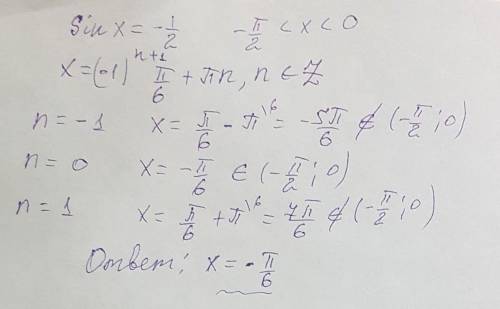 Sin x = -1/2    -π/2 < x < 0
x = (-1)^(n+1) π/6 + πn, n ∈ Z
n = -1    x = π/6 - π^\6 = -5π/6 ∉ (-π/2; 0)
n = 0    x = -π/6 ∈ (-π/2; 0)
n = 1    x = π/6 + π^\6 = 7π/6 ∉ (-π/2; 0)
Ответ: x = -π/6